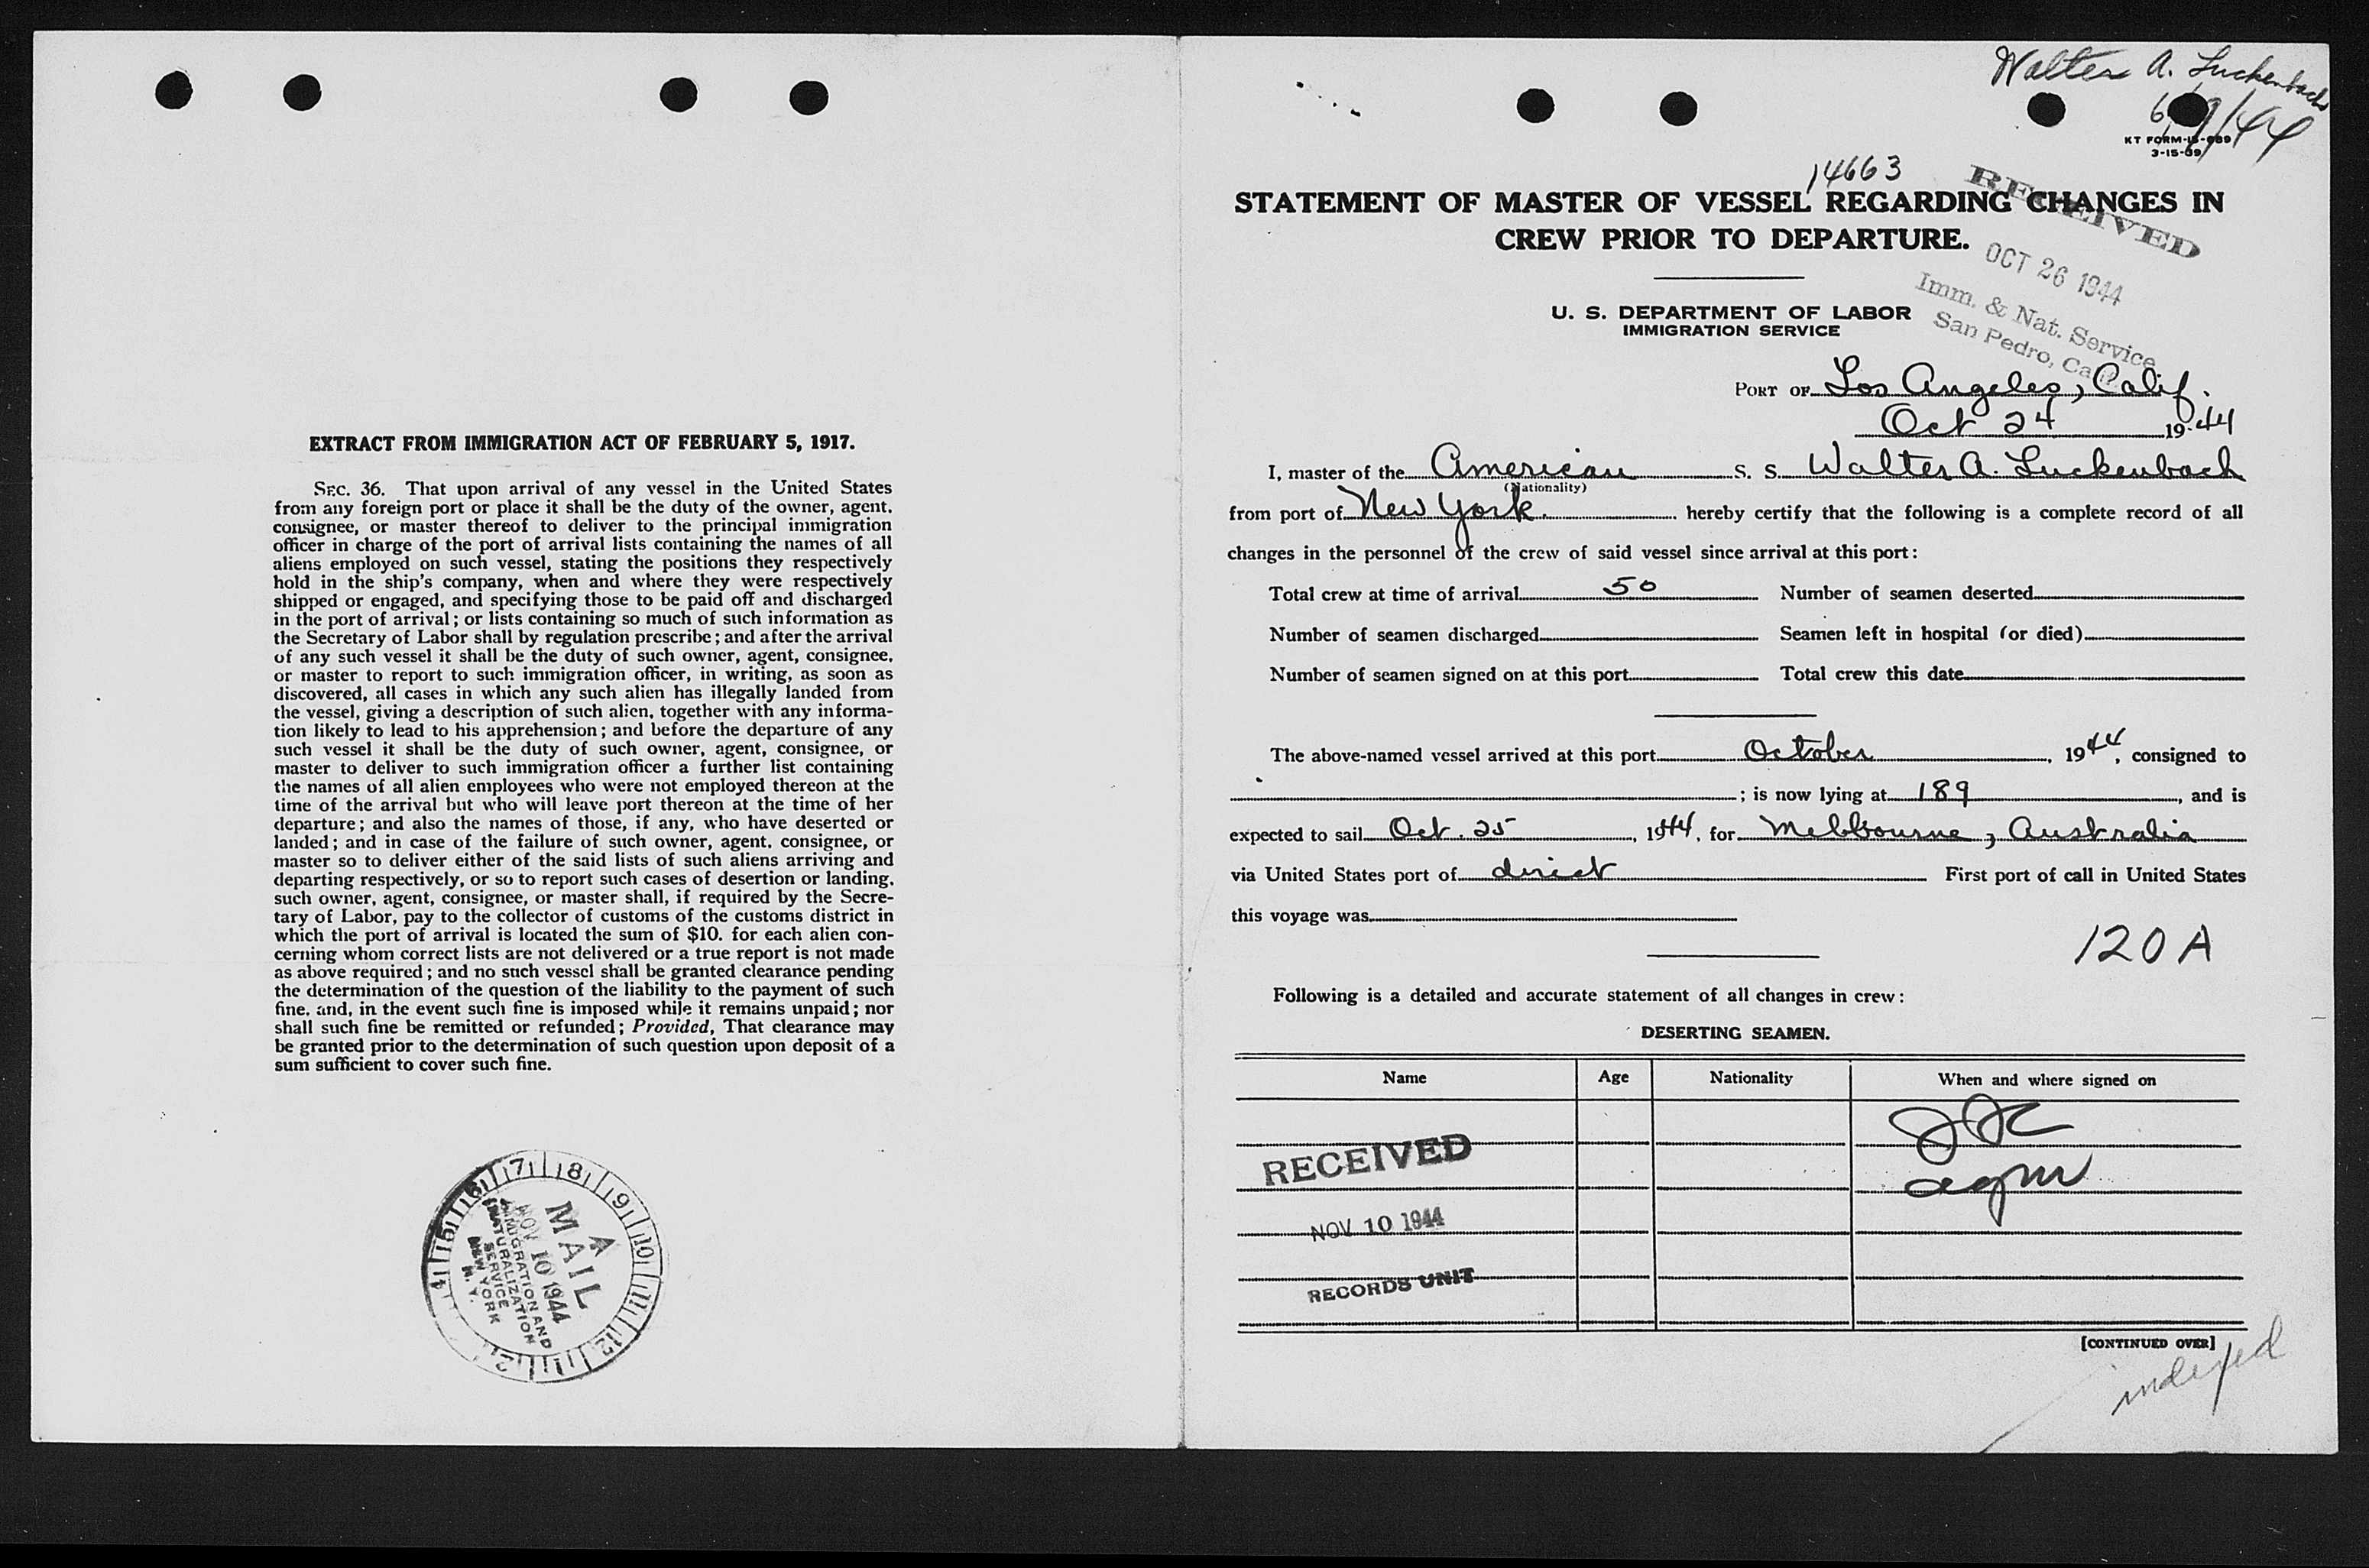 EXTRACT FROM IMMIGRATION ACT OF FEBRUARY 5, 1917.
SEC. 36. That upon arrival of any vessel in the United States
from any foreign port or place it shall be the duty of the owner, agent,
consignee, or master thereof to deliver to the principal immigration
officer in charge of the port of arrival lists containing the names of all
aliens employed on such vessel, stating the positions they respectively
hold in the ship's company, when and where they were respectively
shipped or engaged, and specifying those to be paid off and discharged
in the port of arrival; or lists containing so much of such information as
the Secretary of Labor shall by regulation prescribe; and after the arrival
of any such vessel it shall be the duty of such owner, agent, consignee,
or master to report to such immigration officer, in writing, as soon as
discovered, all cases in which any such alien has illegally landed from
the vessel, giving a description of such alien, together with any informa-
tion likely to lead to his apprehension; and before the departure of any
such vessel it shall be the duty of such owner, agent, consignee, or
master to deliver to such immigration officer a further list containing
the names of all alien employees who were not employed thereon at the
time of the arrival but who will leave port thereon at the time of her
departure; and also the names of those, if any, who have deserted or
landed; and in case of the failure of such owner, agent, consignee, or
master so to deliver either of the said lists of such aliens arriving and
departing respectively, or so to report such cases of desertion or landing,
such owner, agent, consignee, or master shall, if required by the Secre-
tary of Labor, pay to the collector of customs of the customs district in
which the port of arrival is located the sum of $10. for each alien con-
cerning whom correct lists are not delivered or a true report is not made
as above required; and no such vessel shall be granted clearance pending
the determination of the question of the liability to the payment of such
fine, and, in the event such fine is imposed while it remains unpaid; nor
shall such fine be remitted or refunded; Provided, That clearance may
be granted prior to the determination of such question upon deposit of a
sum sufficient to cover such fine.
MAIL
NOV 10 1944
IMMIGRATION AND
NATURALIZATION
SERVICE
NEW YORK
N. Y.
Walter A. Luckenbach
KT FORM
14663
STATEMENT OF MASTER OF VESSEL REGARDING CHANGES IN
CREW PRIOR TO DEPARTURE.
RECEIVED
OCT 26 1944
Imm. & Nat. Service
San Pedro, Calif.
U. S. DEPARTMENT OF LABOR
IMMIGRATION SERVICE
PORT OF Los Angeles, Calif.
Oct 24 1944
I, master of the American S. S. Walter A. Luckenbach
(Nationality)
from port of New York. hereby certify that the following is a complete record of all
changes in the personnel of the crew of said vessel since arrival at this port:
Total crew at time of arrival 50 Number of seamen deserted
Number of seamen discharged Seamen left in hospital (or died)
Number of seamen signed on at this port Total crew this date
The above-named vessel arrived at this port October, 1944, consigned to
; is now lying at 189, and is
expected to sail Oct. 25, 1944, for Melbourne, Australia
via United States port of direct First port of call in United States
this voyage was
120 A
Following is a detailed and accurate statement of all changes in crew:
DESERTING SEAMEN.
Name Age Nationality When and where signed on
RECEIVED
NOV 10 1944
RECORDS UNIT
[CONTINUED OVER]
indexed